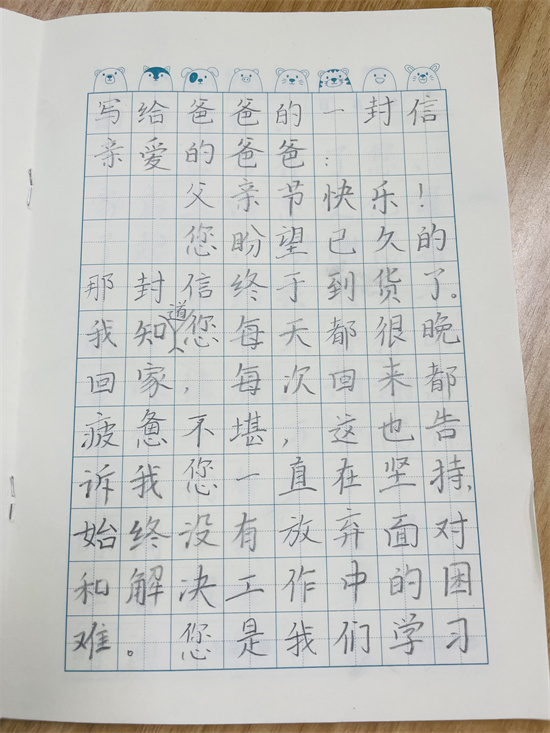 写给爸爸的一封信
亲爱的爸爸：
父亲节快乐！
您盼望已久的
那封信终于到货了。
我知道您每天都很晚
回家，每次回来都
疲惫不堪，这也告
诉我您一直在坚持，
始终没有放弃面对
和解决工作中的困
难。您是我们学习